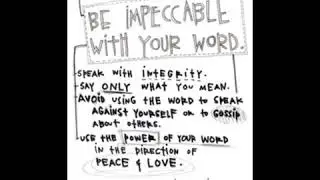 BE IMPECCABLE
WITH YOUR WORD.
SPEAK WITH INTEGRITY.
SAY ONLY WHAT YOU MEAN.
AVOID USING THE WORD TO SPEAK
AGAINST YOURSELF OR TO GOSSIP
ABOUT OTHERS.
USE THE POWER OF YOUR WORD
IN THE DIRECTION OF
PEACE & LOVE.